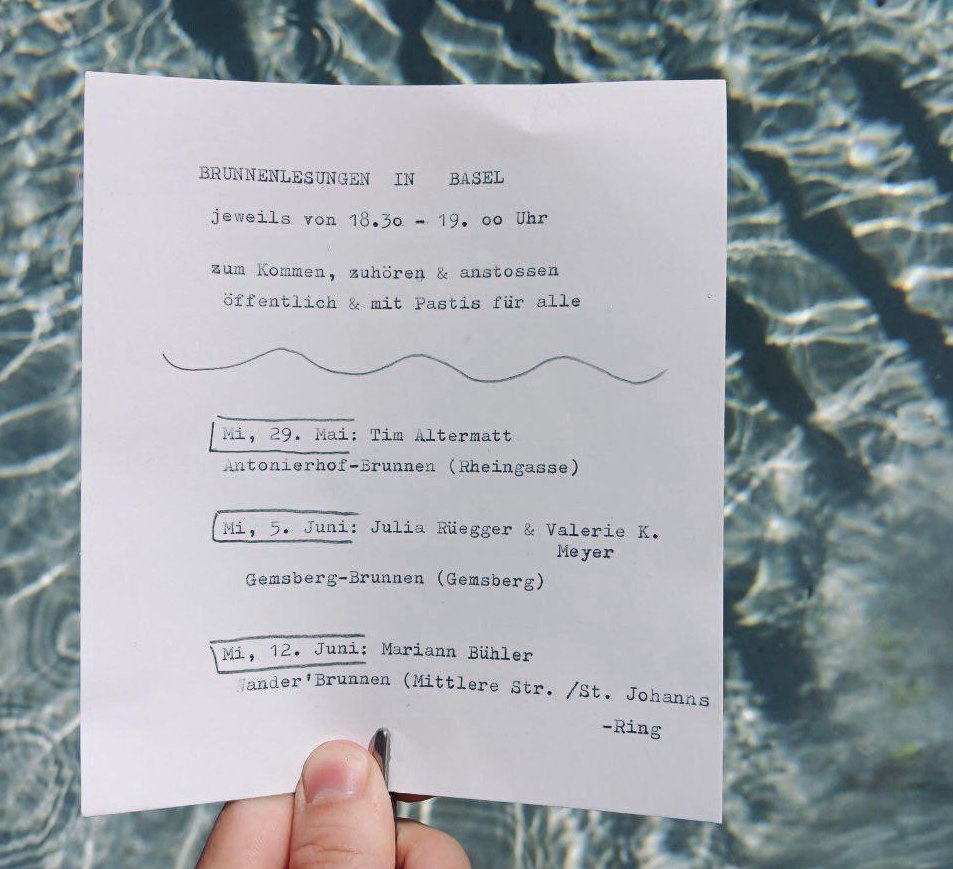 BRUNNENLESUNGEN IN BASEL
jeweils von 18.3o - 19. oo Uhr
zum Kommen, zuhören & anstossen
öffentlich & mit Pastis für alle
Mi, 29. Mai: Tim Altermatt
Antonierhof-Brunnen (Rheingasse)
Mi, 5. Juni: Julia Rüegger & Valerie K.
Meyer
Gemsberg-Brunnen (Gemsberg)
Mi, 12. Juni: Mariann Bühler
Wander'Brunnen (Mittlere Str. /St. Johanns
-Ring